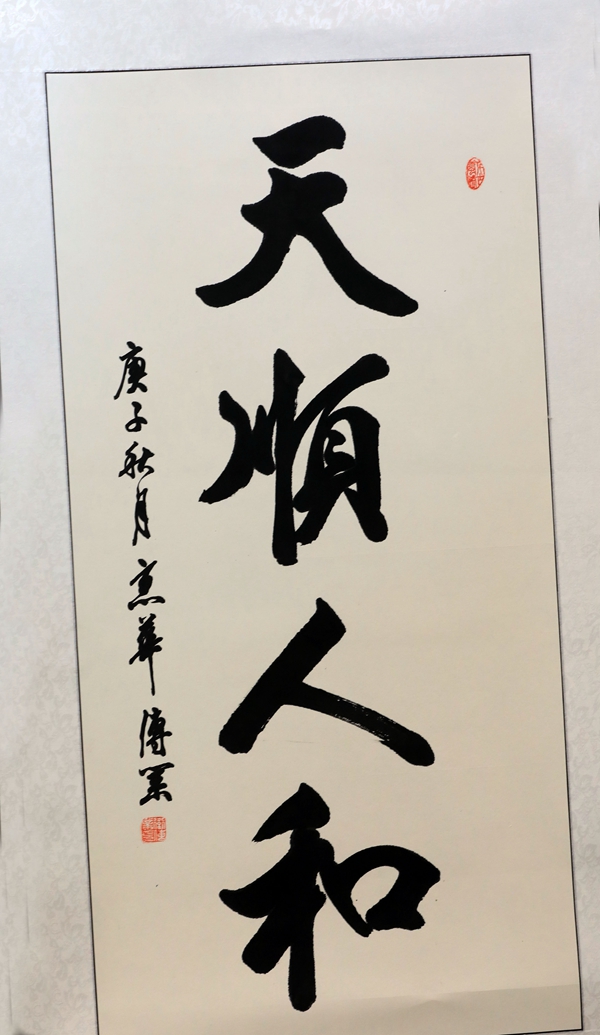 天順人和
庚子秋月惠華